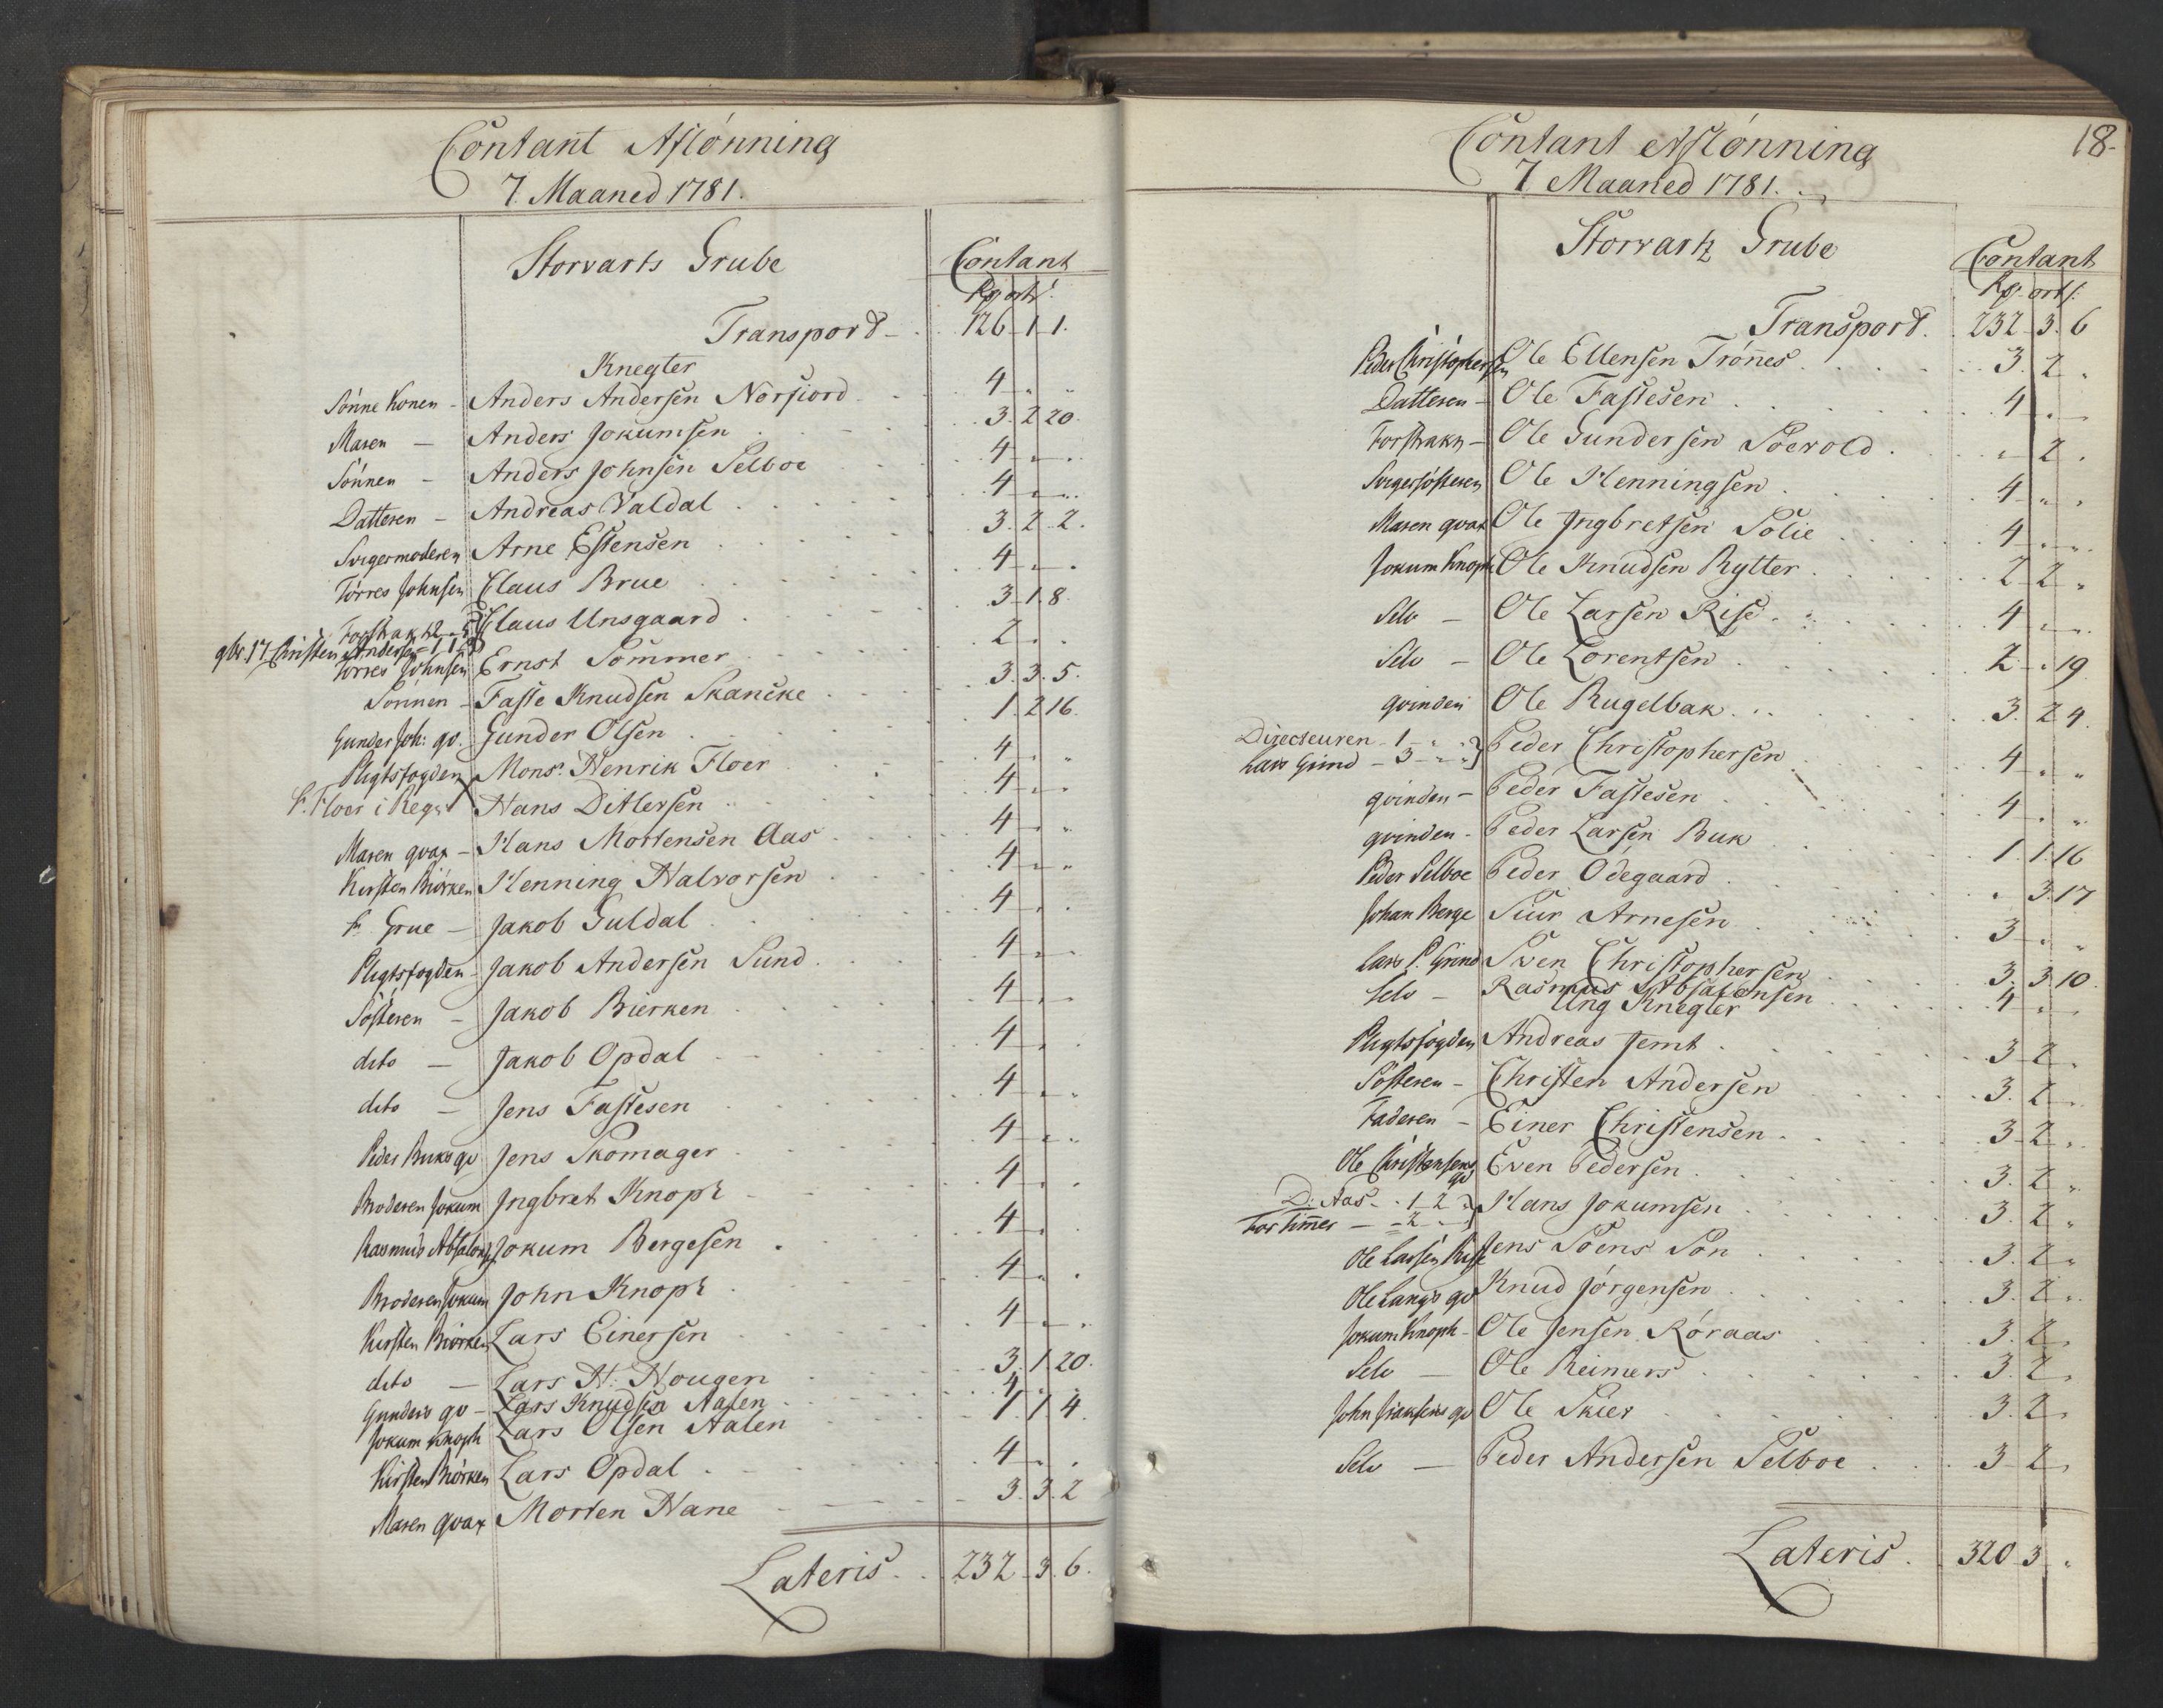 Contant Aflønning
7. Maaned 1781.
Storvarts Grube Contant
Rdr ort s.
Transport 126 1 1.
Knegter
Sønne Konen - Anders Andersen Norfiord 4 " "
Maren - Anders Jokumsen 3. 2 20.
Sønnen - Anders Johnsen Selboe 4 " "
Datteren - Andreas Valdal 4 " "
Svigermoderen Arne Estensen 3. 2. 2.
Tørres Johnsen Claus Brue 4 " "
Forstrakt 2 Claus Unsgaard 3. 1. 8.
Christen Andersen 1 1
Tørres Johnsen Ernst Sommer 2 " "
Sønnen - Faste Knudsen Skancke 3. 3. 5.
Gunder Joh: qv. Gunder Olsen 1. 2 16.
Pligtsfogden Mons. Henrik Floer 4 " "
F. Floer i Regn Hans Ditlefsen 4 " "
Maren qvax - Hans Mortensen Aas 4 " "
Kirsten Biörken Henning Halvorsen 4 " "
F. Grue - Jakob Guldal 4 " "
Pligtsfogden - Jakob Andersen Sund 4 " "
Søsteren - Jakob Bierken 4 " "
dito - Jakob Opdal 4 " "
dito - Jens Fastesen 4 " "
Peder Buks qv Jens Skomager 4 " "
Broderen Jokum Ingbret Knoph 4 " "
Rasmus Absalons. Jokum Bergesen 4 " "
Broderen Jokum John Knoph 4 " "
Kirsten Biörken Lars Einersen 4 " "
dito - Lars H: Hougen 3. 1. 20.
Gunders qv - Lars Knudsen Aalen 4 " "
Jokum Knoph Lars Olsen Aalen 1. 1. 4.
Kirsten Biörken Lars Opdal 4 " "
Maren qvax Morten Hane 3. 3. 2
Lateris 232 3. 6.
18.
Contant Aflønning
7 Maaned 1781.
Storvartz Grube Contant
Rdr ort s.
Transport. 232 3. 6
Peder Christophersen Ole Ellensen Trønes 3. 2 "
Datteren - Ole Fastesen 4 " "
Forstrakn - Ole Gundersen Soevold " 2 "
Svigersøsteren Ole Henningsen 4 " "
Maren qvax Ole Ingbretsen Solie 4 " "
Jokum Knoph Ole Knudsen Rytter 2 2 "
Selv - Ole Larsen Rise 4 " "
Selv - Ole Lorentsen 2 " 19
qvinden Ole Rugelbak 3. 2 4.
Directeuren - 1 " "
Lars Grind - 3 " " Peder Christophersen 4 " "
qvinden - Peder Fastesen 4 " "
qvinden - Peder Larsen Buk 1. 1. 16
Peder Selboe Peder Odegaard " 3. 17
Johan Berge Siur Arnesen 3 " "
Lars P. Grind Sven Christophersen 3. 3 10.
Selv - Rasmus Absalonsen 4 " "
Ung Knegter
Pligtsfogden Andreas Jemt 3 2 "
Søsteren - Christen Andersen 3. 2 "
Faderen - Einer Christensen 3 2 "
Ole Christensens qv Even Pedersen 3. 2 "
D. Aas - 1 2 "
For Timer - " 2 " Hans Jokumsen 3. 2 "
Ole Larsen Rise Jens Soens Søn 3. 2 "
Ole Langs qv Knud Jørgensen 3. 2 "
Jokum Knoph - Ole Jensen Røraas 3. 2 "
Selv - Ole Reimers 3. 2 "
John Isaksens qv Ole Skier 3. 2 "
Selv - Peder Andersen Selboe 3 2 "
Lateris 320 3 "